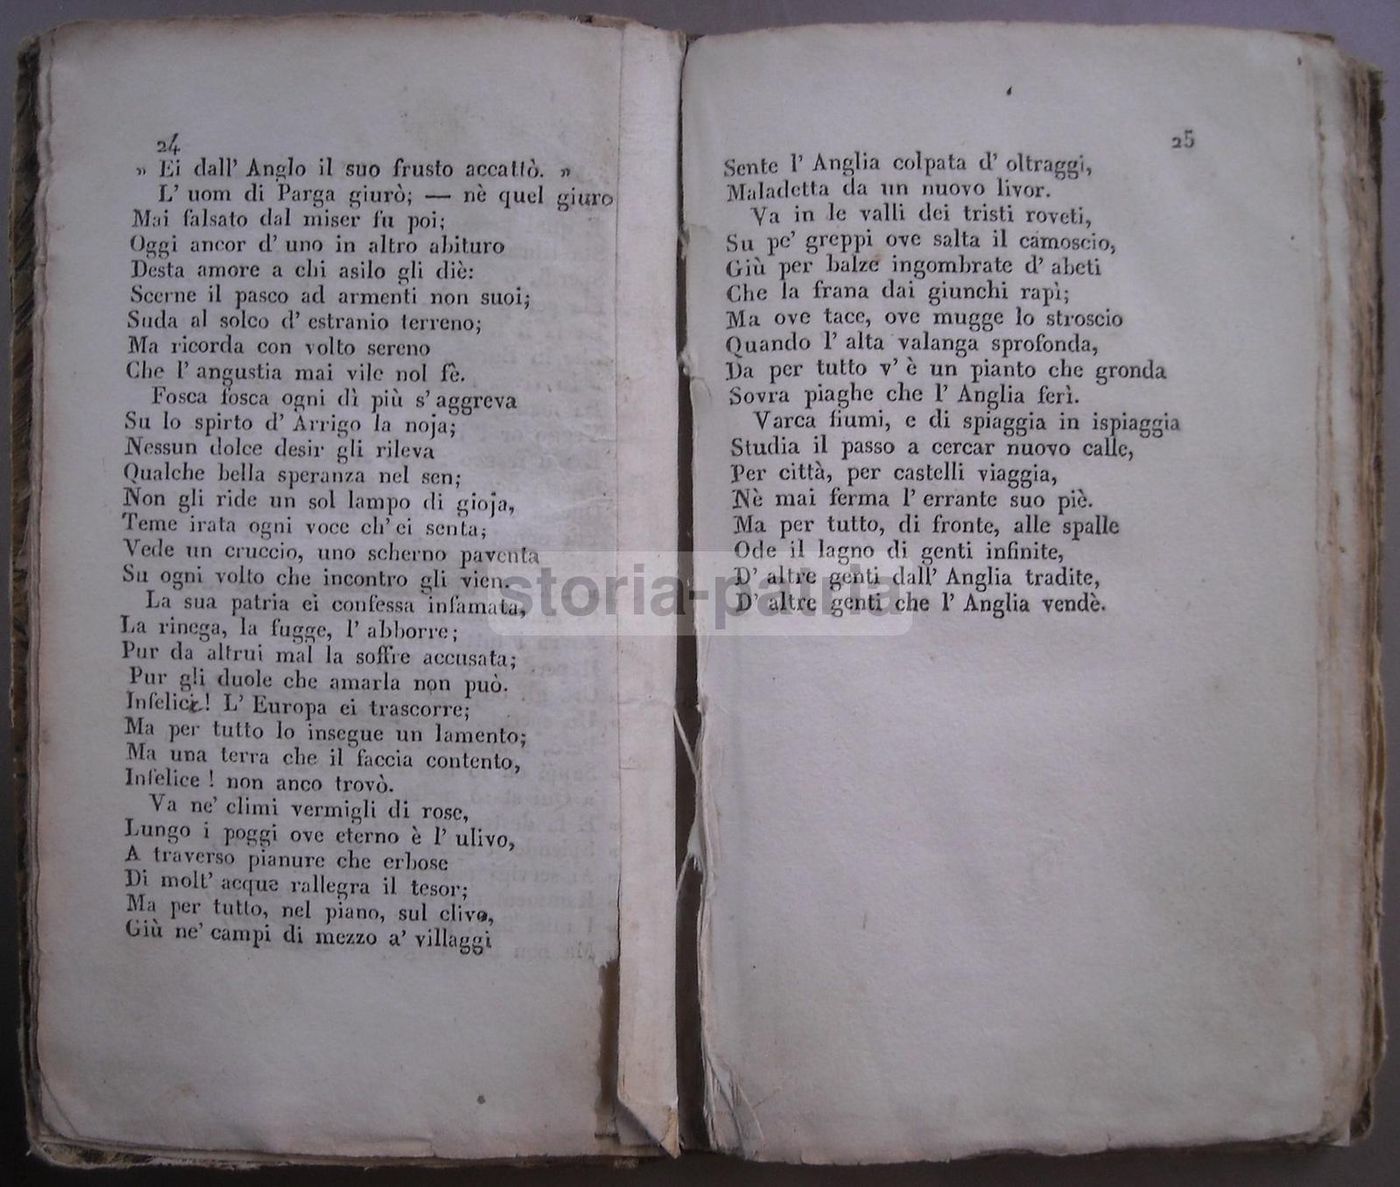 24
„ Ei dall' Anglo il suo frusto accattò. „
L' uom di Parga giurò; — nè quel giuro
Mai falsato dal miser fu poi;
Oggi ancor d' uno in altro abituro
Desta amore a chi asilo gli diè:
Scerne il pasco ad armenti non suoi;
Suda al solco d' estranio terreno;
Ma ricorda con volto sereno
Che l' angustia mai vile nol fè.
Fosca fosca ogni dì più s' aggreva
Su lo spirto d' Arrigo la noja;
Nessun dolce desir gli rileva
Qualche bella speranza nel sen;
Non gli ride un sol lampo di gioja,
Teme irata ogni voce ch' ei senta;
Vede un cruccio, uno scherno paventa
Su ogni volto che incontro gli vien.
La sua patria ei confessa infamata,
La rinega, la fugge, l' abborre;
Pur da altrui mal la soffre accusata;
Pur gli duole che amarla non può.
Infelice! L' Europa ei trascorre;
Ma per tutto lo insegue un lamento;
Ma una terra che il faccia contento,
Infelice! non anco trovò.
Va ne' climi vermigli di rose,
Lungo i poggi ove eterno è l' ulivo,
A traverso pianure che erbose
Di molt' acque rallegra il tesor;
Ma per tutto, nel piano, sul clivo,
Giù ne' campi di mezzo a' villaggi
25
Sente l' Anglia colpata d' oltraggi,
Maladetta da un nuovo livor.
Va in le valli dei tristi roveti,
Su pe' greppi ove salta il camoscio,
Giù per balze ingombrate d' abeti
Che la frana dai giunchi rapì;
Ma ove tace, ove mugge lo stroscio
Quando l' alta valanga sprofonda,
Da per tutto v' è un pianto che gronda
Sovra piaghe che l' Anglia ferì.
Varca fiumi, e di spiaggia in ispiaggia
Studia il passo a cercar nuovo calle,
Per città, per castelli viaggia,
Nè mai ferma l' errante suo piè.
Ma per tutto, di fronte, alle spalle
Ode il lagno di genti infinite,
D' altre genti dall' Anglia tradite,
D' altre genti che l' Anglia vendè.
storia-patria